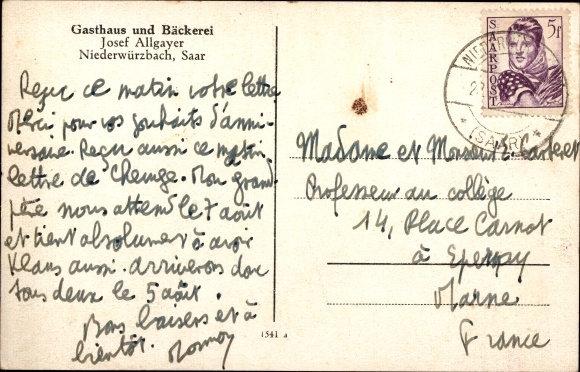 Gasthaus und Bäckerei
Josef Allgayer
Niederwürzbach, Saar
Reçu ce matin votre lettre
Merci pour vos souhaits d'anni-
versaire. Reçu aussi ce matin
lettre de . Mon grand
père nous attend le 7 août
et tient absolument à avoir
Klaus aussi. Arriverons donc
tous deux le 5 août.
Bons baisers et à
bientôt.
SAARPOST
5f
(SAAR)
Madame et Monsieur
Professeur au collège
14, Place Carnot
à Epernay
Marne
France
1541 a